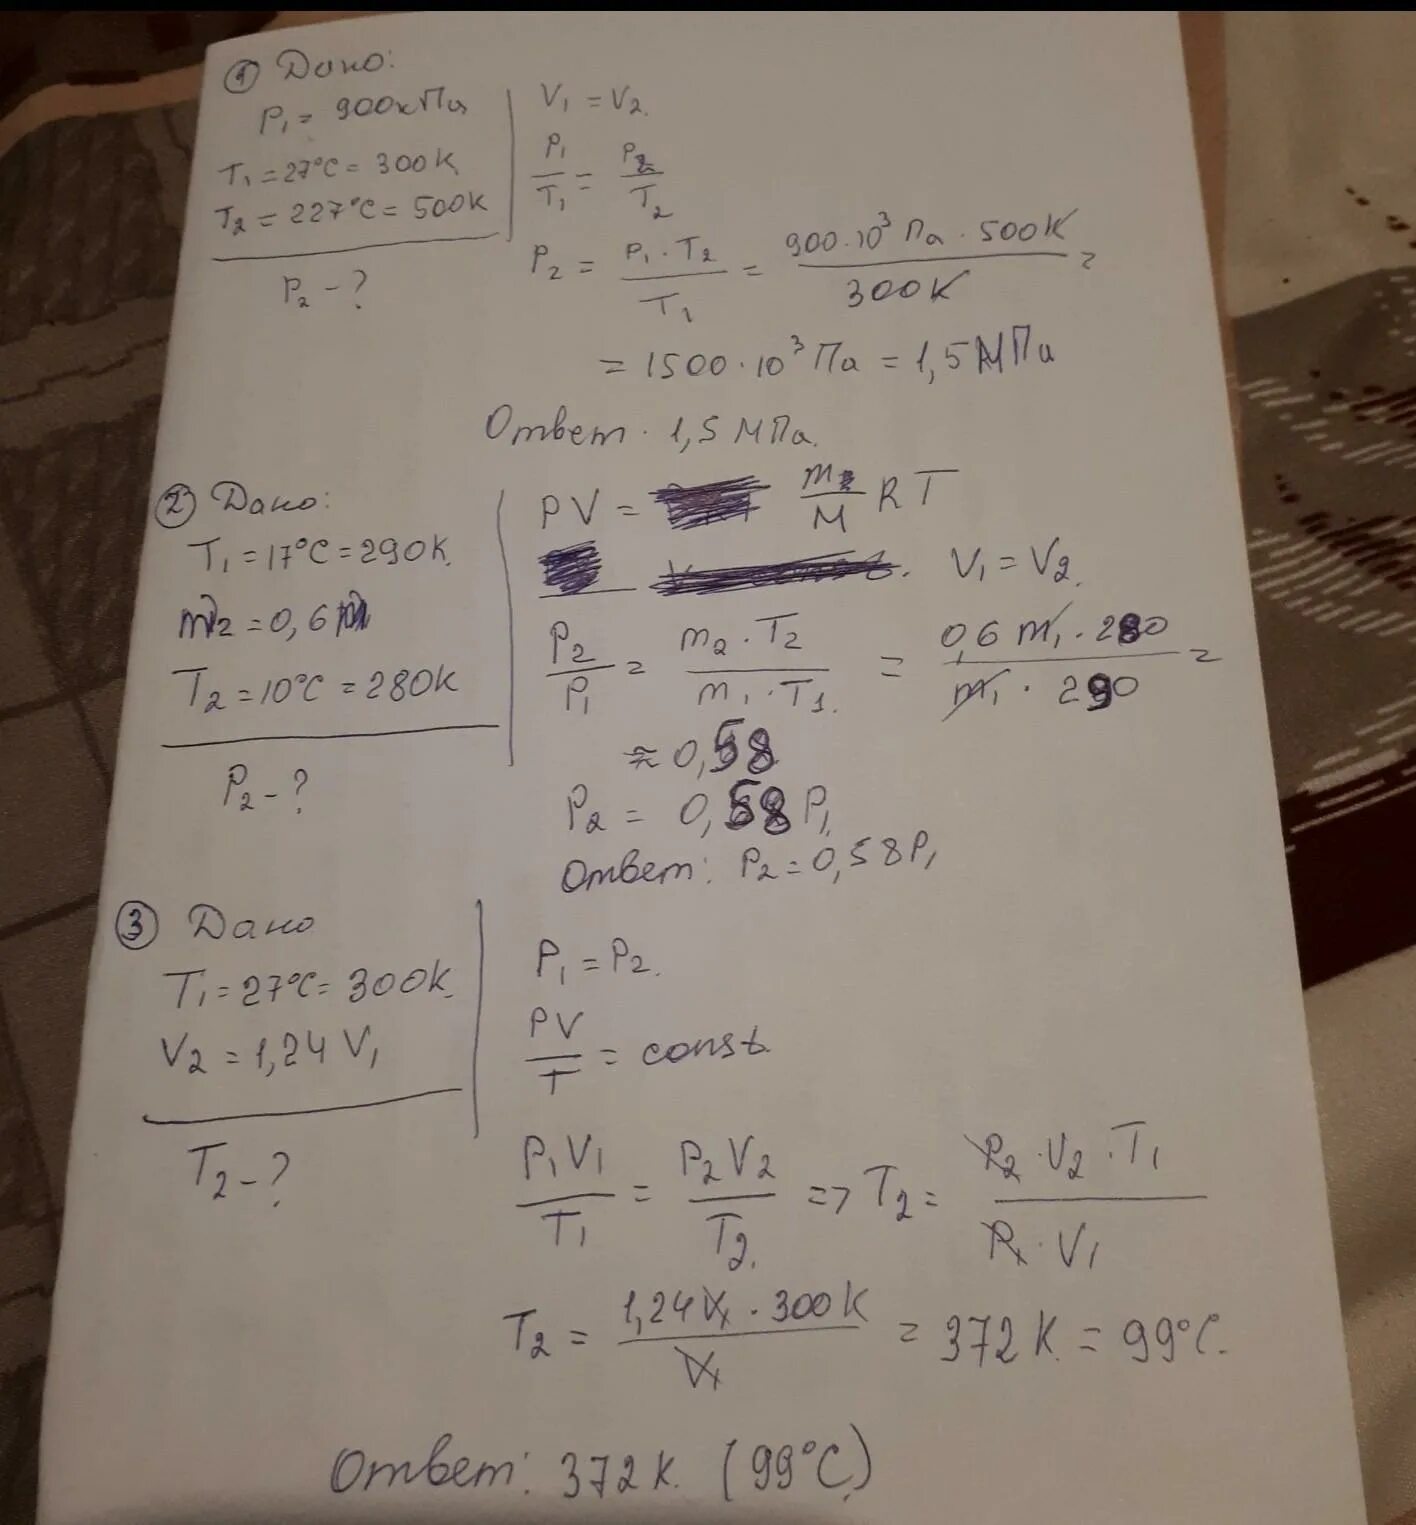 ① Дано:
P₁ = 900кПа
T₁ = 27°C = 300К
T₂ = 227°C = 500К
P₂ - ?
V₁ = V₂.
P₁/T₁ = P₂/T₂
P₂ = P₁ · T₂ / T₁ = 900·10³ Па · 500К / 300К =
= 1500·10³ Па = 1,5 МПа
Ответ · 1,5 МПа.
② Дано:
T₁ = 17°C = 290К.
m₂ = 0,6
T₂ = 10°C = 280К
P₂ - ?
PV = m/M RT
V₁ = V₂.
P₂/P₁ = m₂ · T₂ / m₁ · T₁. = 0,6 m₁ · 280 / m₁ · 290 =
≈ 0,58
P₂ = 0,58 P₁
Ответ: P₂ = 0,58P₁
③ Дано
T₁ = 27°C = 300К.
V₂ = 1,24 V₁
T₂ - ?
P₁ = P₂.
PV/T = const.
P₁V₁/T₁ = P₂V₂/T₂. => T₂ = P₂ · V₂ · T₁ / P₁ · V₁
T₂ = 1,24V₁ · 300К / V₁ = 372 К. = 99°C.
Ответ: 372 К. (99°C)